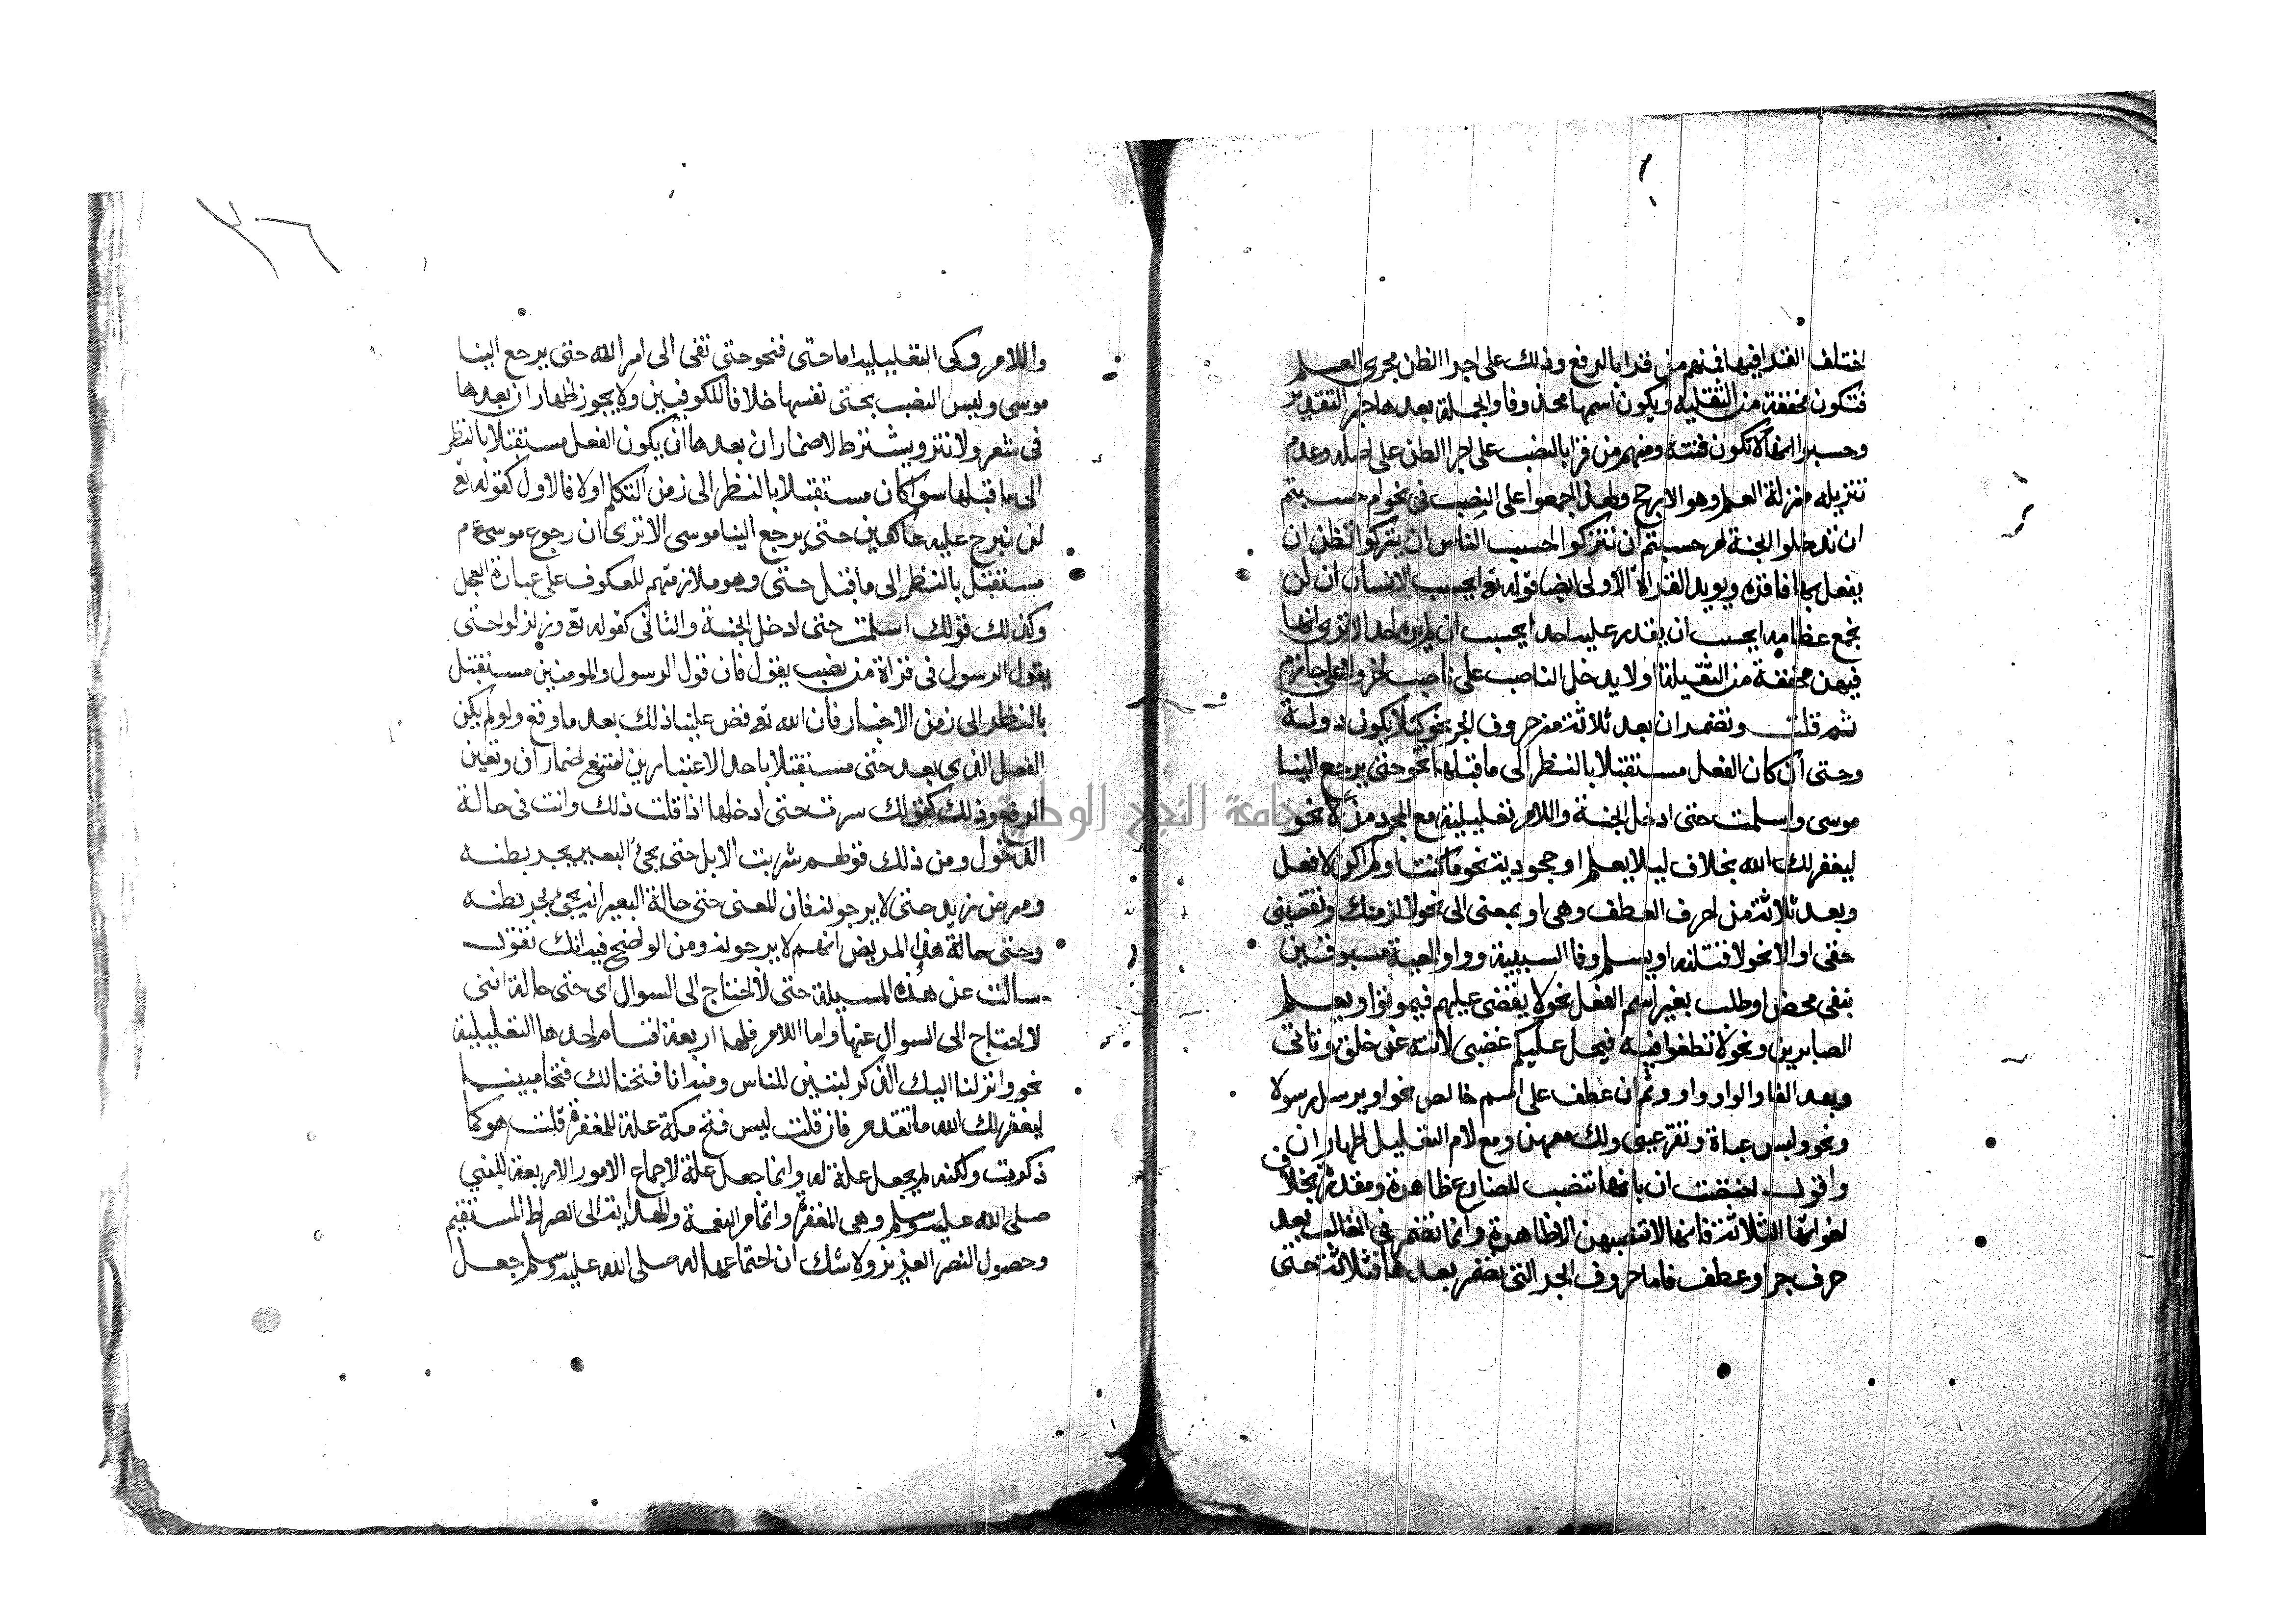 اختلف القرا فيها فمنهم من قرا بالرفع وذلك على اجرا الظن مجرى العلم
فتكون مخففة من الثقيلة ويكون اسمها محذوفا والجملة بعدها خبر التقدير
وحسبوا انها لا تكون فتنة ومنهم من قرا بالنصب على اجرا الظن على اصله وعدم
تنزيله منزلة العلم وهو الارجح ولهذا اجمعوا على النصب في نحو ام حسبتم
ان تدخلوا الجنة ام حسبتم ان تتركوا احسب الناس ان يتركوا تظن ان
يفعل بها فاقرة ويويد القراة الاولى ايضا قوله تع ايحسب الانسان ان لن
نجمع عظامه ايحسب ان لن يقدر عليه احد ايحسب ان لم يره احد الا ترى انها
فيهن مخففة من الثقيلة اذ لا يدخل الناصب على ناصب اخر ولا على جازم
ثم قلت وتضمر ان بعد ثلاثة من حروف الجر نحو كيلا يكون دولة
وحتى ان كان الفعل مستقبلا بالنظر الى ما قبلها نحو حتى يرجع الينا
موسى واسلمت حتى ادخل الجنة واللام تعليلية مع المجرد من لا نحو
ليغفر لك الله بخلاف ليلا يعلم او جحودية نحو ما كنت او لم اكن لافعل
وبعد ثلاثة من احرف العطف وهي او بمعنى الى نحو لالزمنك او تقضيني
حقي او الا نحو لاقتلنه او يسلم وفا السببية وواو المعية مسبوقتين
بنفي محض او طلب بغير اسم الفعل نحو لا يقضى عليهم فيموتوا ويعلم
الصابرين ونحو لا تطغوا فيه فيحل عليكم غضبي لا تنه عن خلق وتاتي
وبعد الفا والواو واو وثم ان عطف على اسم خالص نحو او يرسل رسولا
ونحو ولبس عباة وتقر عيني ولك معهن ومع لام التعليل اظهار ان
واقول اختصت ان بانها تنصب المضارع ظاهرة ومقدرة بخلاف
اخواتها الثلاثة فانها لا تنصبه الا ظاهرة وانما تضمر في الغالب بعد
حرف جر او عطف فاما حروف الجر التي تضمر بعدها فثلاثة حتى
٢٠٦
واللام وكي التعليلية اما حتى فنحو حتى تفي الى امر الله حتى يرجع الينا
موسى وليس النصب بحتى نفسها خلافا للكوفيين ولا يجوز اظهار ان بعدها
في شعر ولا نثر ويشترط لاضمار ان بعدها ان يكون الفعل مستقبلا بالنظر
الى ما قبلها سوا كان مستقبلا بالنظر الى زمن التكلم اولا فالاول كقوله تع
لن نبرح عليه عاكفين حتى يرجع الينا موسى الا ترى ان رجوع موسى ع م
مستقبل بالنظر الى ما قبل حتى وهو ملازمتهم للعكوف على عبادة العجل
وكذلك قولك اسلمت حتى ادخل الجنة والثاني كقوله تع وزلزلوا حتى
يقول الرسول في قراة من نصب يقول فان قول الرسول والمومنين مستقبل
بالنظر الى زمن الاخبار فان الله تع قص علينا ذلك بعد ما وقع ولو لم يكن
الفعل الذي بعد حتى مستقبلا باحد الاعتبارين امتنع اضمار ان وتعين
الرفع وذلك كقولك سرت حتى ادخلها اذا قلت ذلك وانت في حالة
الدخول ومن ذلك قولهم شربت الابل حتى يجئ البعير يجر بطنه
ومرض زيد حتى لا يرجونه فان المعنى حتى حالة البعير انه يجئ يجر بطنه
وحتى حالة هذا المريض انهم لا يرجونه ومن الواضح فيه انك تقول
سالت عن هذه المسيلة حتى لا احتاج الى السوال اي حتى حالة انني
لا احتاج الى السوال عنها واما اللام فلها اربعة اقسام احدها التعليلية
نحو وانزلنا اليك الذكر لتبين للناس ومنه انا فتحنا لك فتحا مبينا
ليغفر لك الله ما تقدم فان قلت ليس فتح مكة علة للمغفرة قلت هو كما
ذكرت ولكنه لم يجعل علة له وانما جعل علة لاجتماع الامور الاربعة للنبي
صلى الله عليه وسلم وهي المغفرة واتمام النعمة والهداية الى الصراط المستقيم
وحصول النصر العزيز ولا شك ان اجتماعها له صلى الله عليه وسلم جعل
جامعة النجاح الوطنية